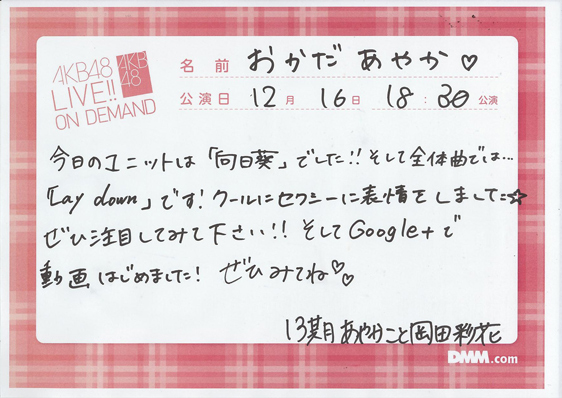 AKB48
LIVE!!
ON DEMAND
AKB
48
名前 おかだあやか♡
公演日 12月 16日 18:30 公演
今日のユニットは「向日葵」でした!!そして全体曲では…
「Lay down」です!クールにセクシーに表情をしました☆
ぜひ注目してみて下さい!!そしてGoogle+で
動画はじめました!ぜひみてね♡♡
13期 あやかこと岡田彩花
DMM.com